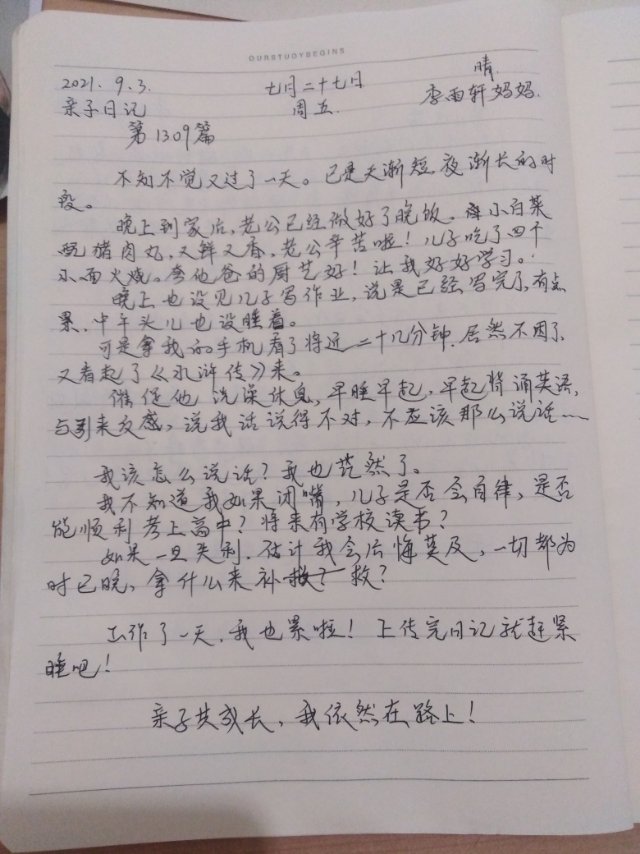 OURSTUDYBEGINS
2021.9.3. 七月二十七日 晴.
亲子日记 周五. 李雨轩妈妈.
第1309篇
不知不觉又过了一天。已是天渐短夜渐长的时
段。
晚上到家后,老公已经做好了晚饭。小白菜
配猪肉丸,又鲜又香,老公辛苦啦!儿子吃了四个
小面火烧。夸他爸的厨艺好!让我好好学习。
晚上也没见儿子写作业,说是已经写完了,有点
累,中午头儿也没睡着。
可是拿我的手机看了将近二十几分钟.居然不困了,
又看起了《水浒传》来。
催促他洗澡休息,早睡早起,早起背诵英语,
反感,说我话说得不对,不应该那么说话……
我该怎么说话?我也茫然了。
我不知道我如果闭嘴,儿子是否会自律,是否
能顺利考上高中?将来有学校读书?
如果一旦失利.估计我会后悔莫及,一切都为
时已晚,拿什么来补救?
工作了一天,我也累啦!上传完日记就赶紧
睡吧!
亲子共成长,我依然在路上!